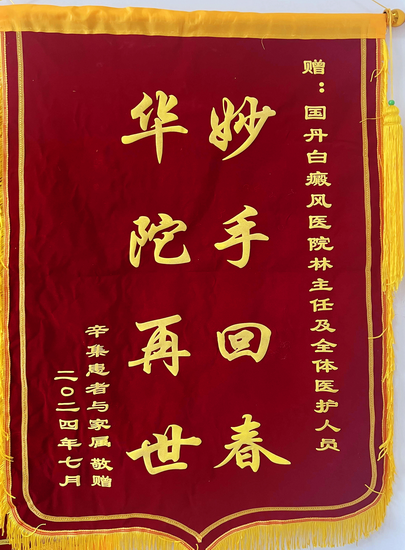 赠：国丹白癜风医院林主任及全体医护人员
妙手回春
华陀再世
辛集患者与家属 敬赠
二〇二四年七月